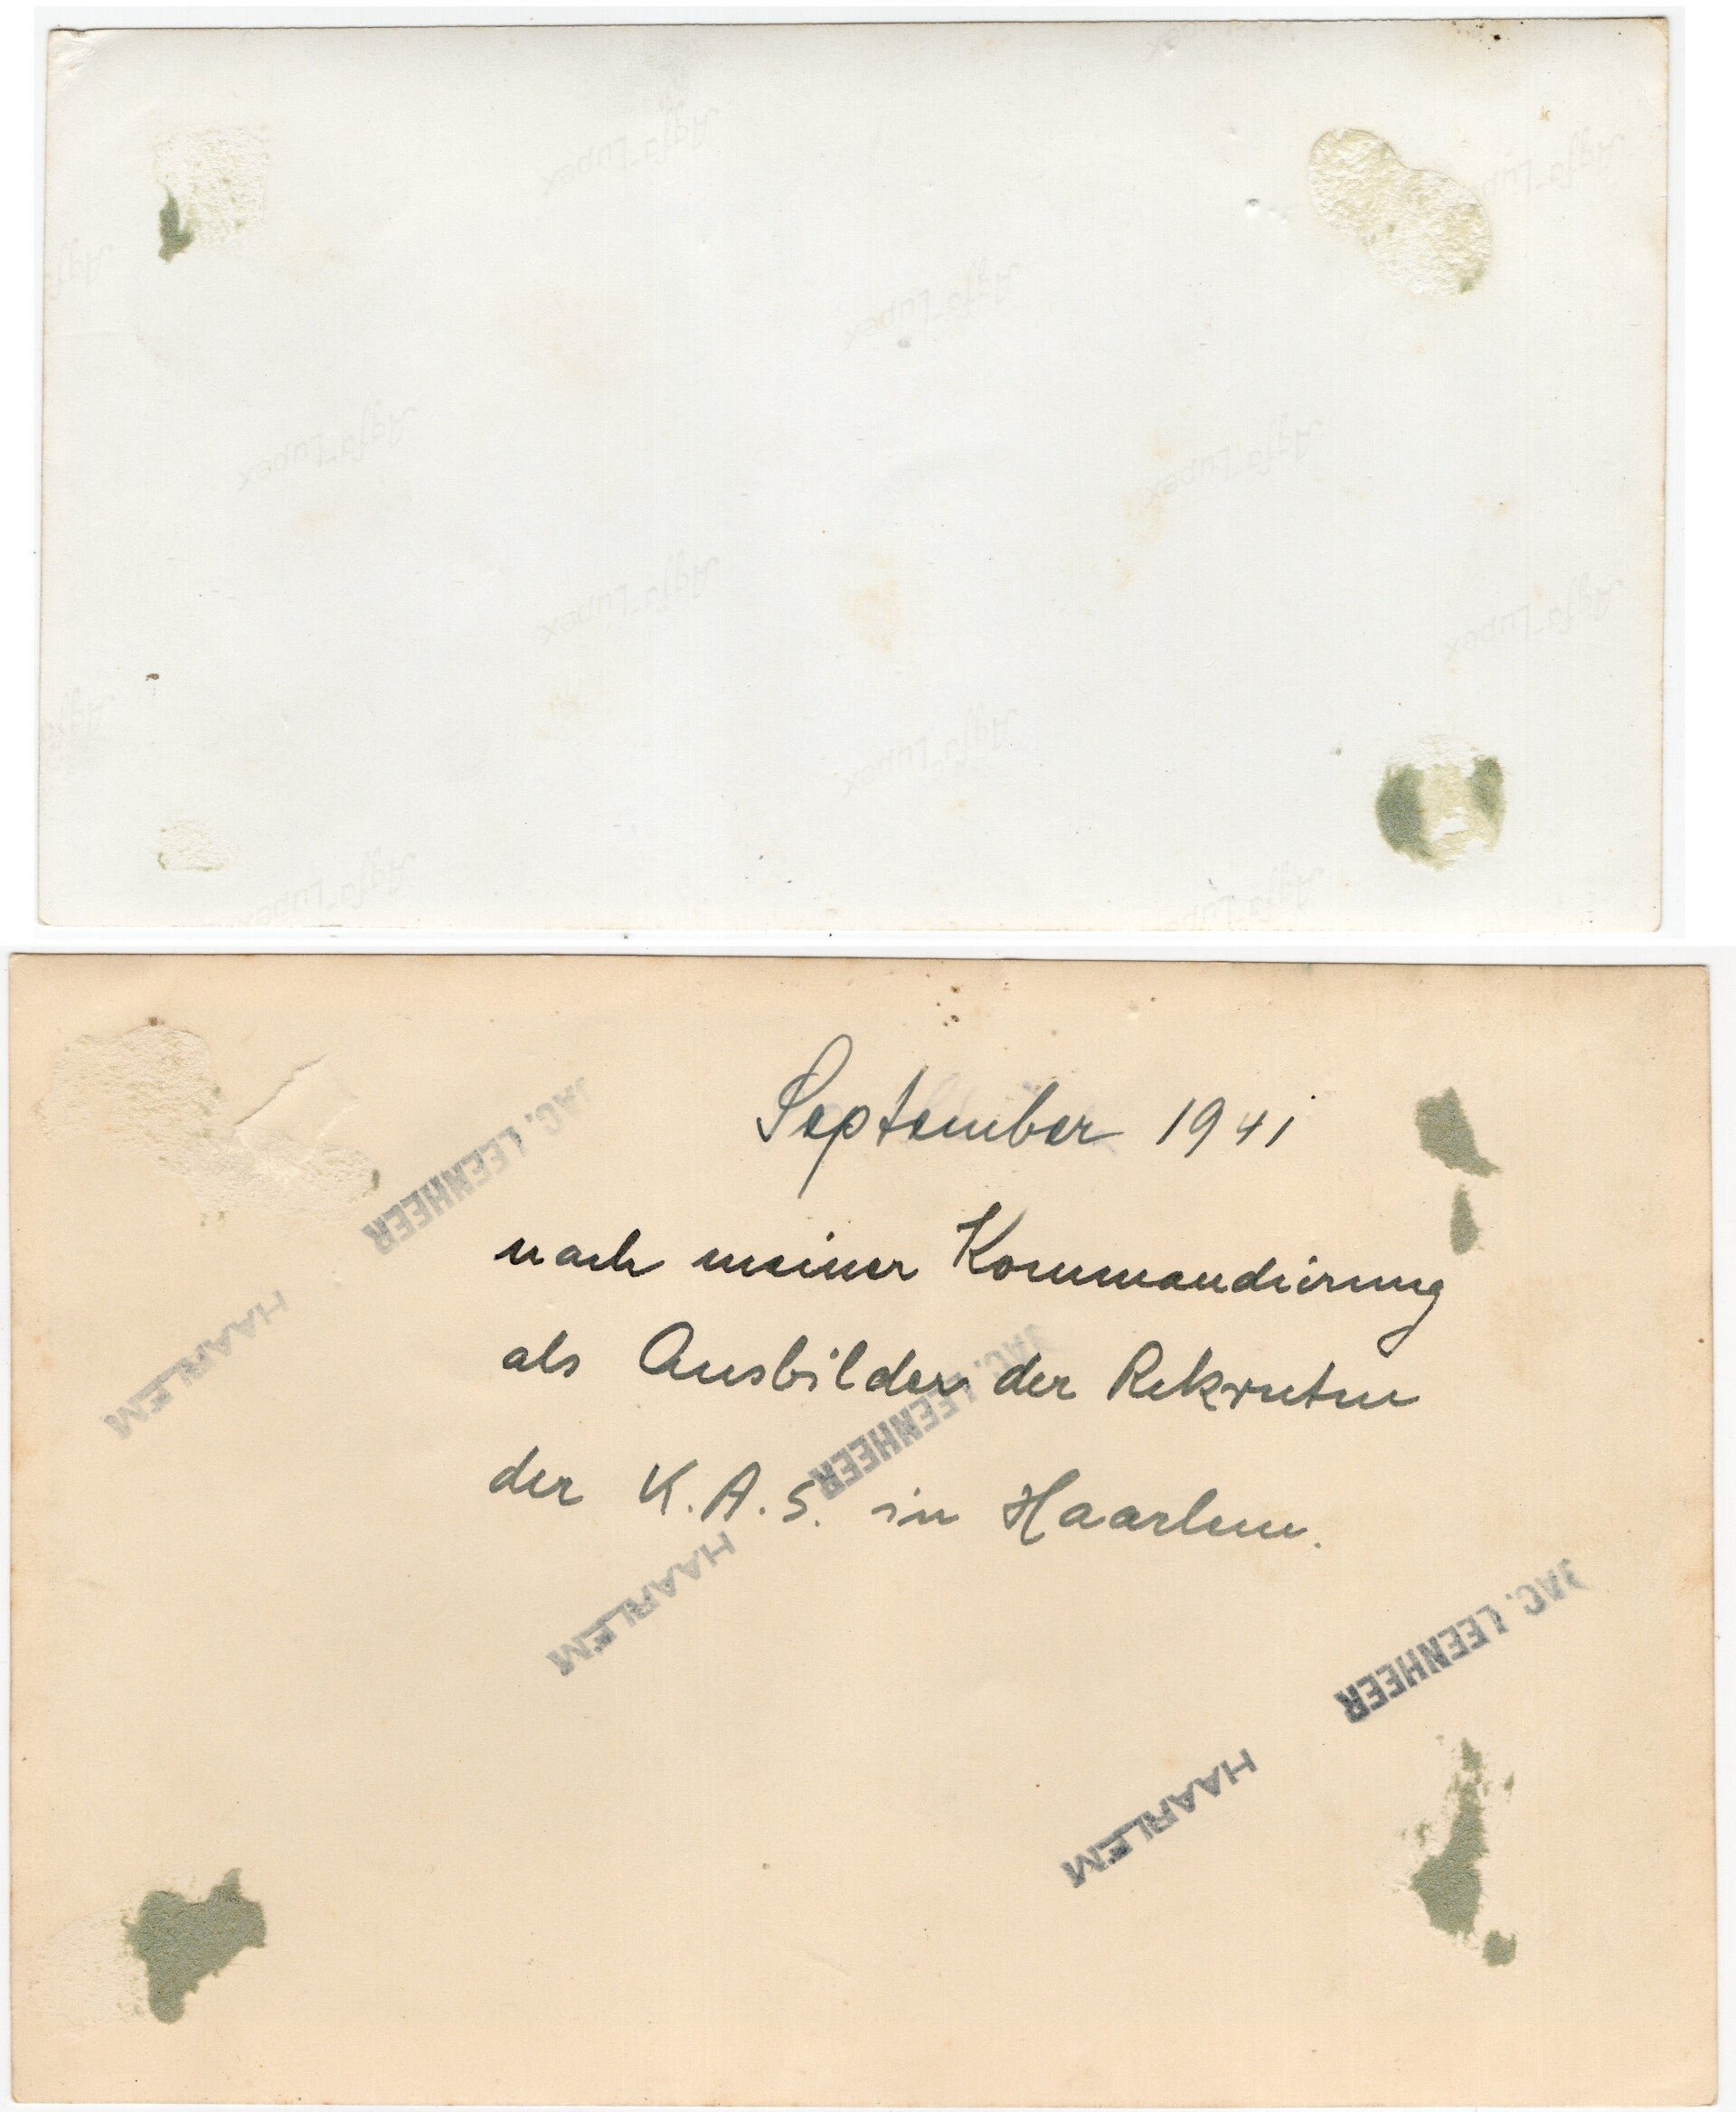 Agfa-Lupex
Agfa-Lupex
Agfa-Lupex
Agfa-Lupex
Agfa-Lupex
Agfa-Lupex
Agfa-Lupex
Agfa-Lupex
Agfa-Lupex
Agfa-Lupex
September 1941
JAC. LEENHEER
nach meiner Kommandierung
HAARLEM
als Ausbilder der Rekruten
JAC. LEENHEER
der K.A.S. in Haarlem.
HAARLEM
JAC. LEENHEER
HAARLEM